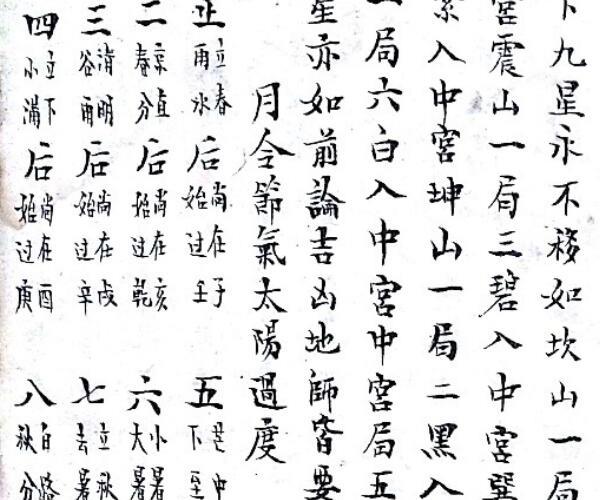 下九星永不移如坎山一局
宮震山一局三碧入中宮巽
入中宮坤山一局二黑入
局六白入中宮中宮局五
星亦如前論吉凶地師皆要
月令節氣太陽過度
正立春雨水后尚在子始过壬五芒中下至
二京直春分后尚在亥始过乾六小暑大暑
三清明谷雨后尚在戍始过辛七立秋去暑
四立下小滿后尚在酉始过庚八白路秋分